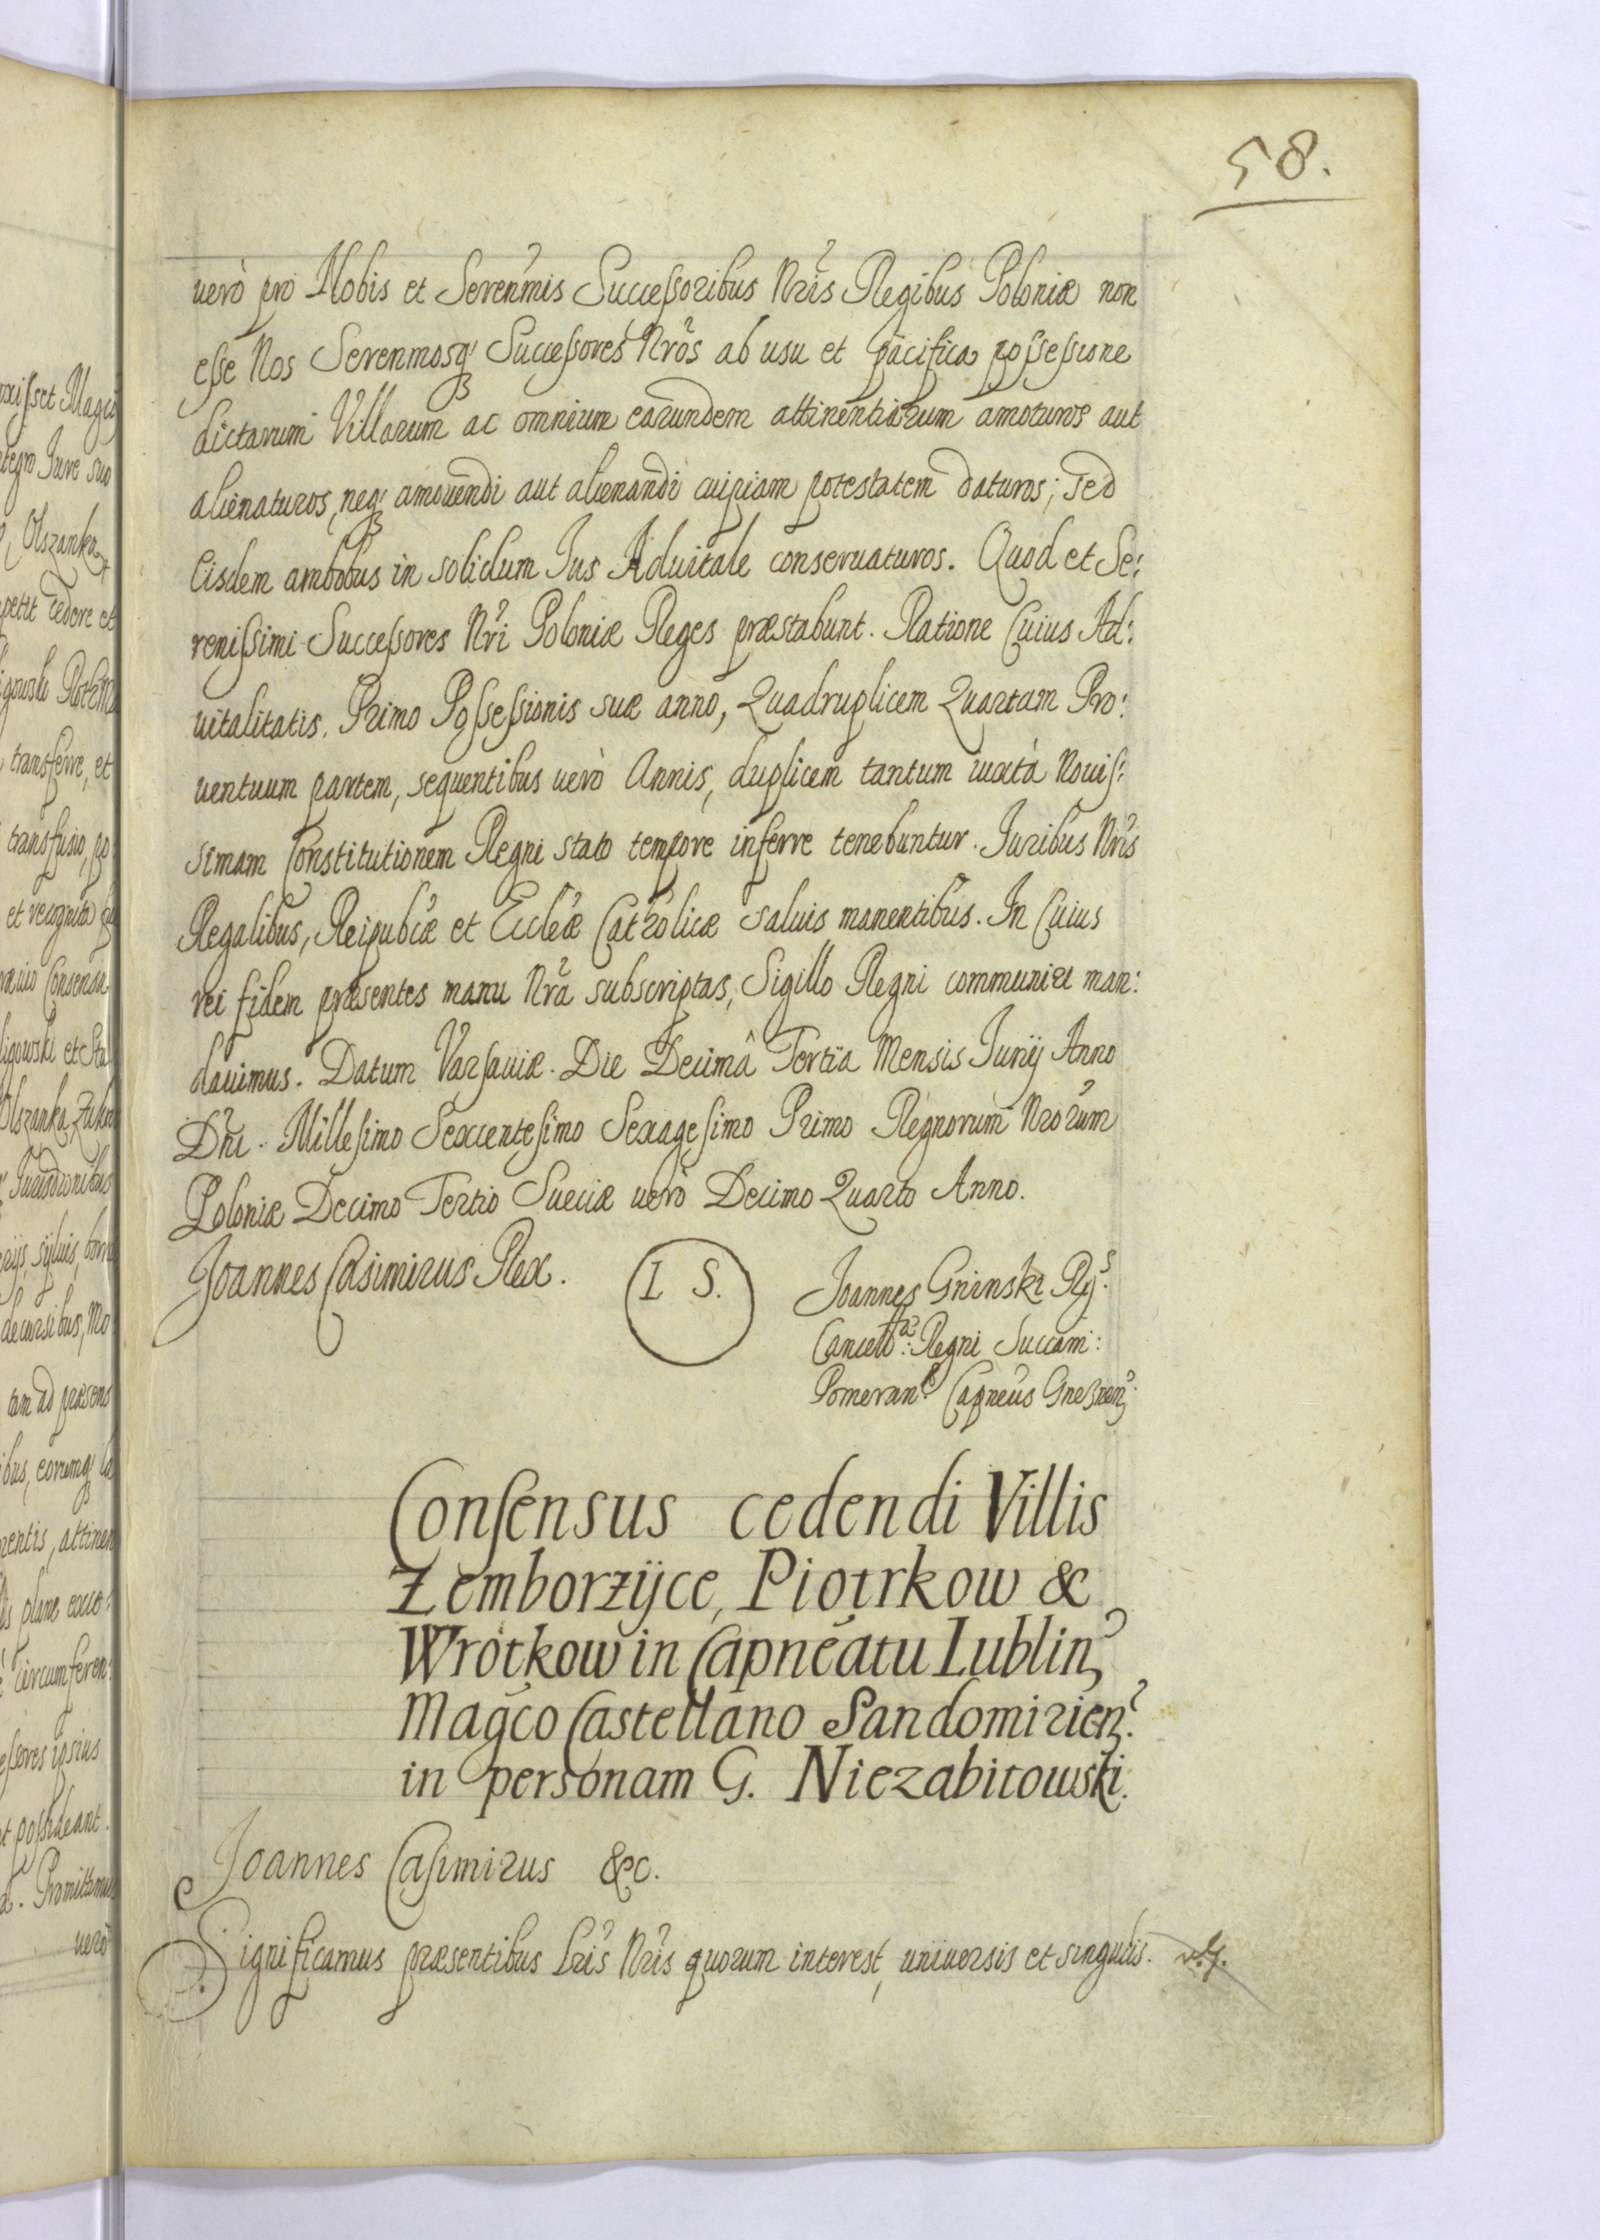 58.
verò pro Nobis et Serenmis Successoribus Nris Regibus Poloniæ non
esse Nos Serenmosq Successores Nros ab usu et pacifica possessione
dictarum Villarum ac omnium earundem attinentiarum amoturos aut
alienaturos, neq amovendi aut alienandi cuipiam potestatem daturos; sed
Eisdem ambobus in solidum Ius Aduitale conseruaturos. Quod et Se:
renissimi Successores Nri Poloniæ Reges præstabunt. Ratione Cuius Ad:
uitalitatis. Primo Possessionis suæ anno, Quadruplicem Quartam Pro:
uentuum partem, sequentibus uerò Annis, duplicem tantum iuxtà Nouis:
simam Constitutionem Regni stato tempore inferre tenebuntur. Iuribus Nris
Regalibus, Reipubcæ et Ecclæ Catholicæ saluis manentibus. In Cuius
rei fidem præsentes manu Nra subscriptas, Sigillo Regni communiri man:
dauimus. Datum Varsauiæ. Die Decimâ Tertia Mensis Iunij Anno
Dni. Millesimo Sexcentesimo Sexagesimo Primo Regnorum Nrorum
Poloniæ Decimo Tertio Sueciæ uerò Decimo Quarto Anno.
Joannes Casimirus Rex.
L S.
Joannes Gninski Rgs.
Cancellæ: Regni Succam:
Pomeran. Capneus Gneznen
Consensus cedendi Villis
Zemborzyce, Piotrkow &
Wrotkow in Capneatu Lublin
Magco Castellano Sandomirien.
in personam G. Niezabitowski.
Joannes Casimirus &c.
Significamus præsentibus Lris Nris quorum interest, uniuersis et singulis.